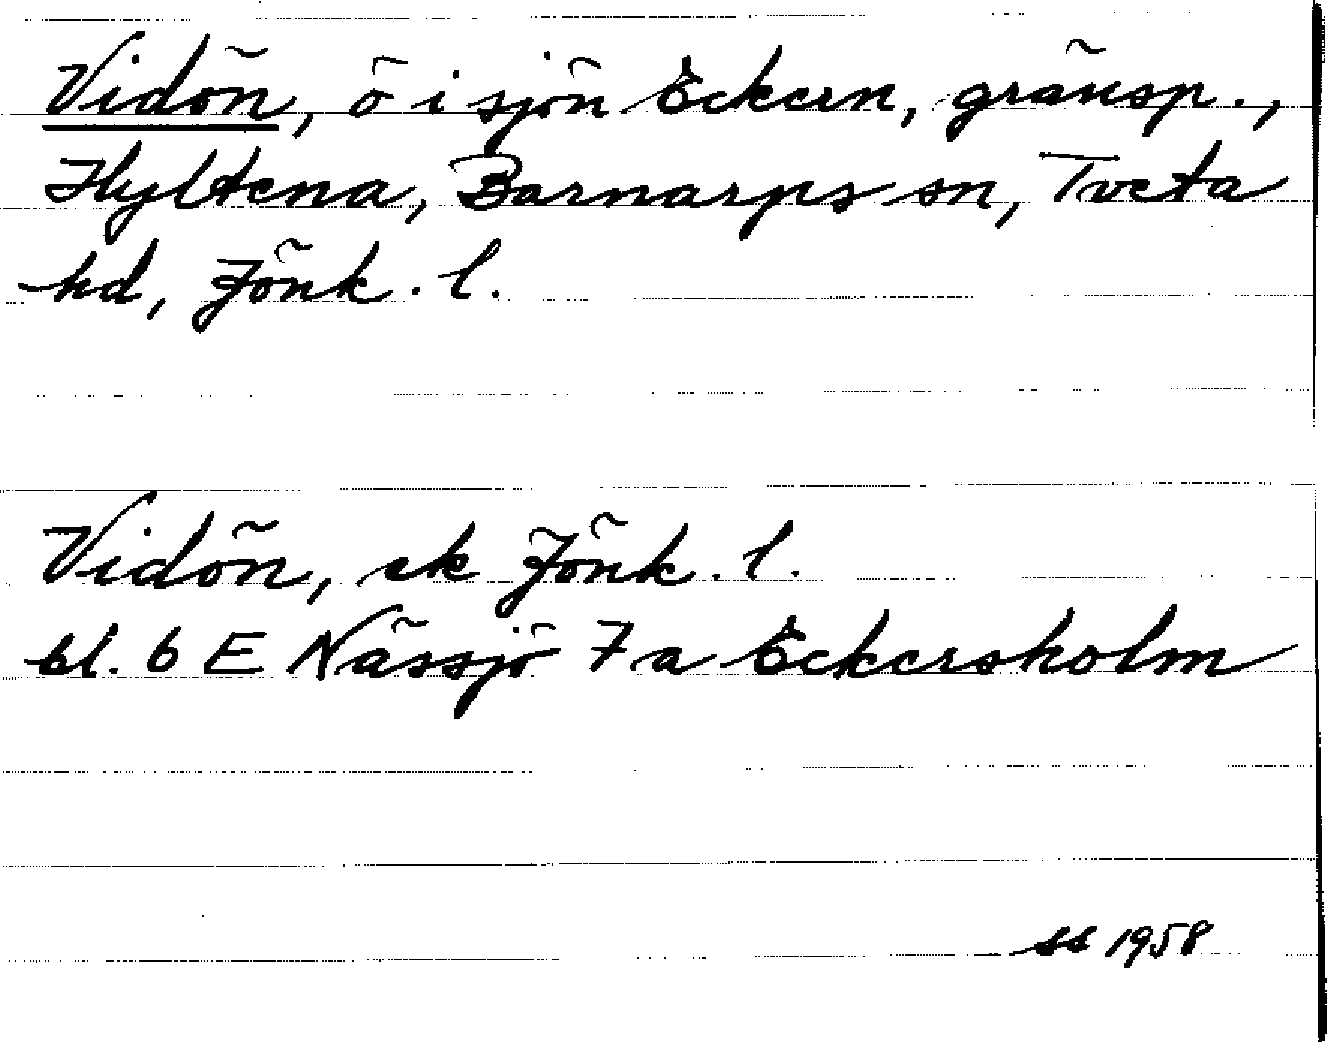 Vidön, ö i sjön Eckern, gränsp.,
Hyltena, Barnarps sn, Tveta
hd, Jönk. l.
Vidön, ek Jönk. l.
bl. 6 E Nässjö 7 a Eckersholm
ss 1958